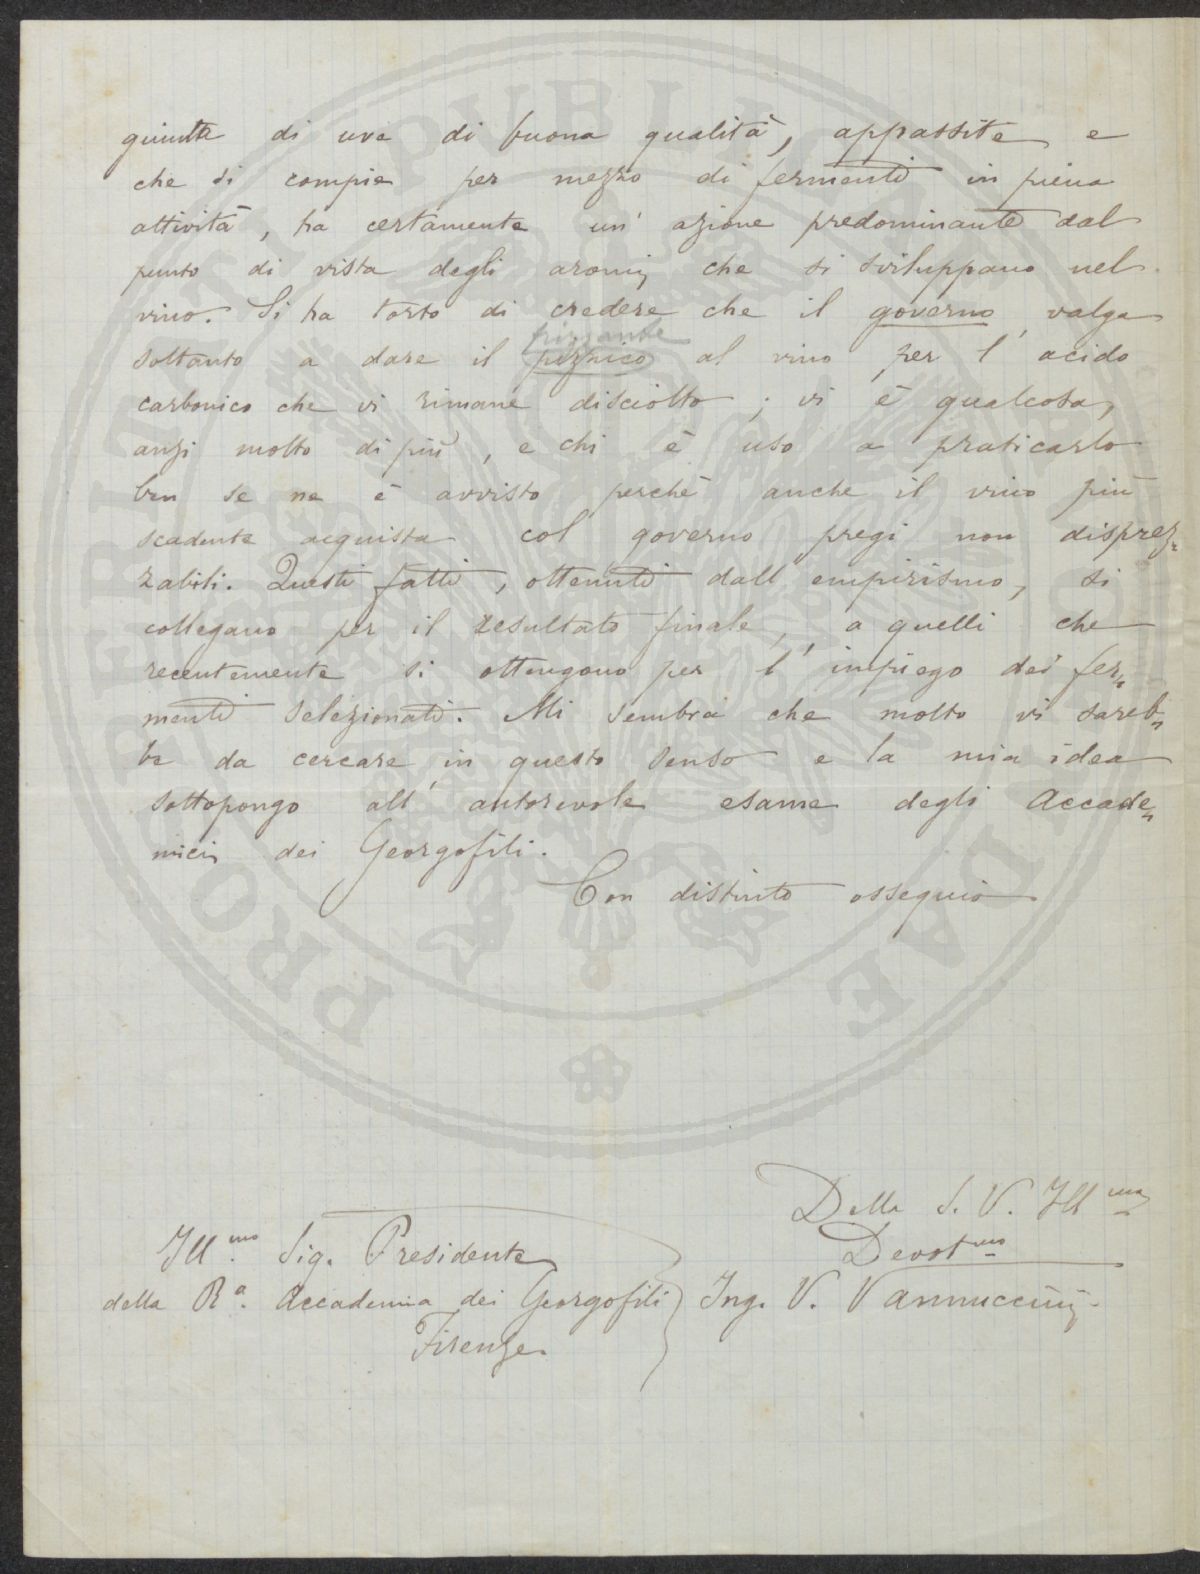 giunta di uva di buona qualità, appassite e
che si compie per mezzo di fermenti in piena
attività, ha certamente un' azione predominante dal
punto di vista degli aromi che si sviluppano nel
vino. Si ha torto di credere che il governo, valga
frizzante
soltanto a dare il pizzico al vino per l' acido
carbonico che vi rimane disciolto; vi è qualcosa,
anzi molto di più, e chi è uso a praticarlo
ben se ne è avvisto perchè anche il vino più
scadente acquista col governo pregi non disprez„
zabili. Questi fatti, ottenuti dall' empirismo, si
collegano per il resultato finale, a quelli che
recentemente si ottengono per l' impiego dei fer„
menti selezionati. Mi sembra che molto vi sareb„
be da cercare in questo senso e la mia idea
sottopongo all' autorevole esame degli Accade„
mici dei Georgofili.
Con distinto ossequio
Della S. V. Ill ma
Devot mo
Ing. V. Vannuccini
Ill. mo Sig. Presidente
della R a. Accademia dei Georgofili
Firenze.
PROPRIETAS PVBLICA